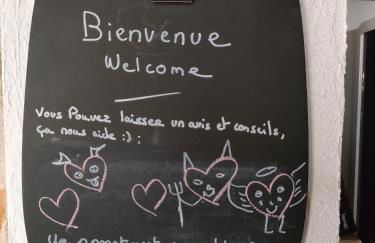 Bienvenue
Welcome
Vous Pouvez laisser un avis et conseils,
ça nous aide :) :